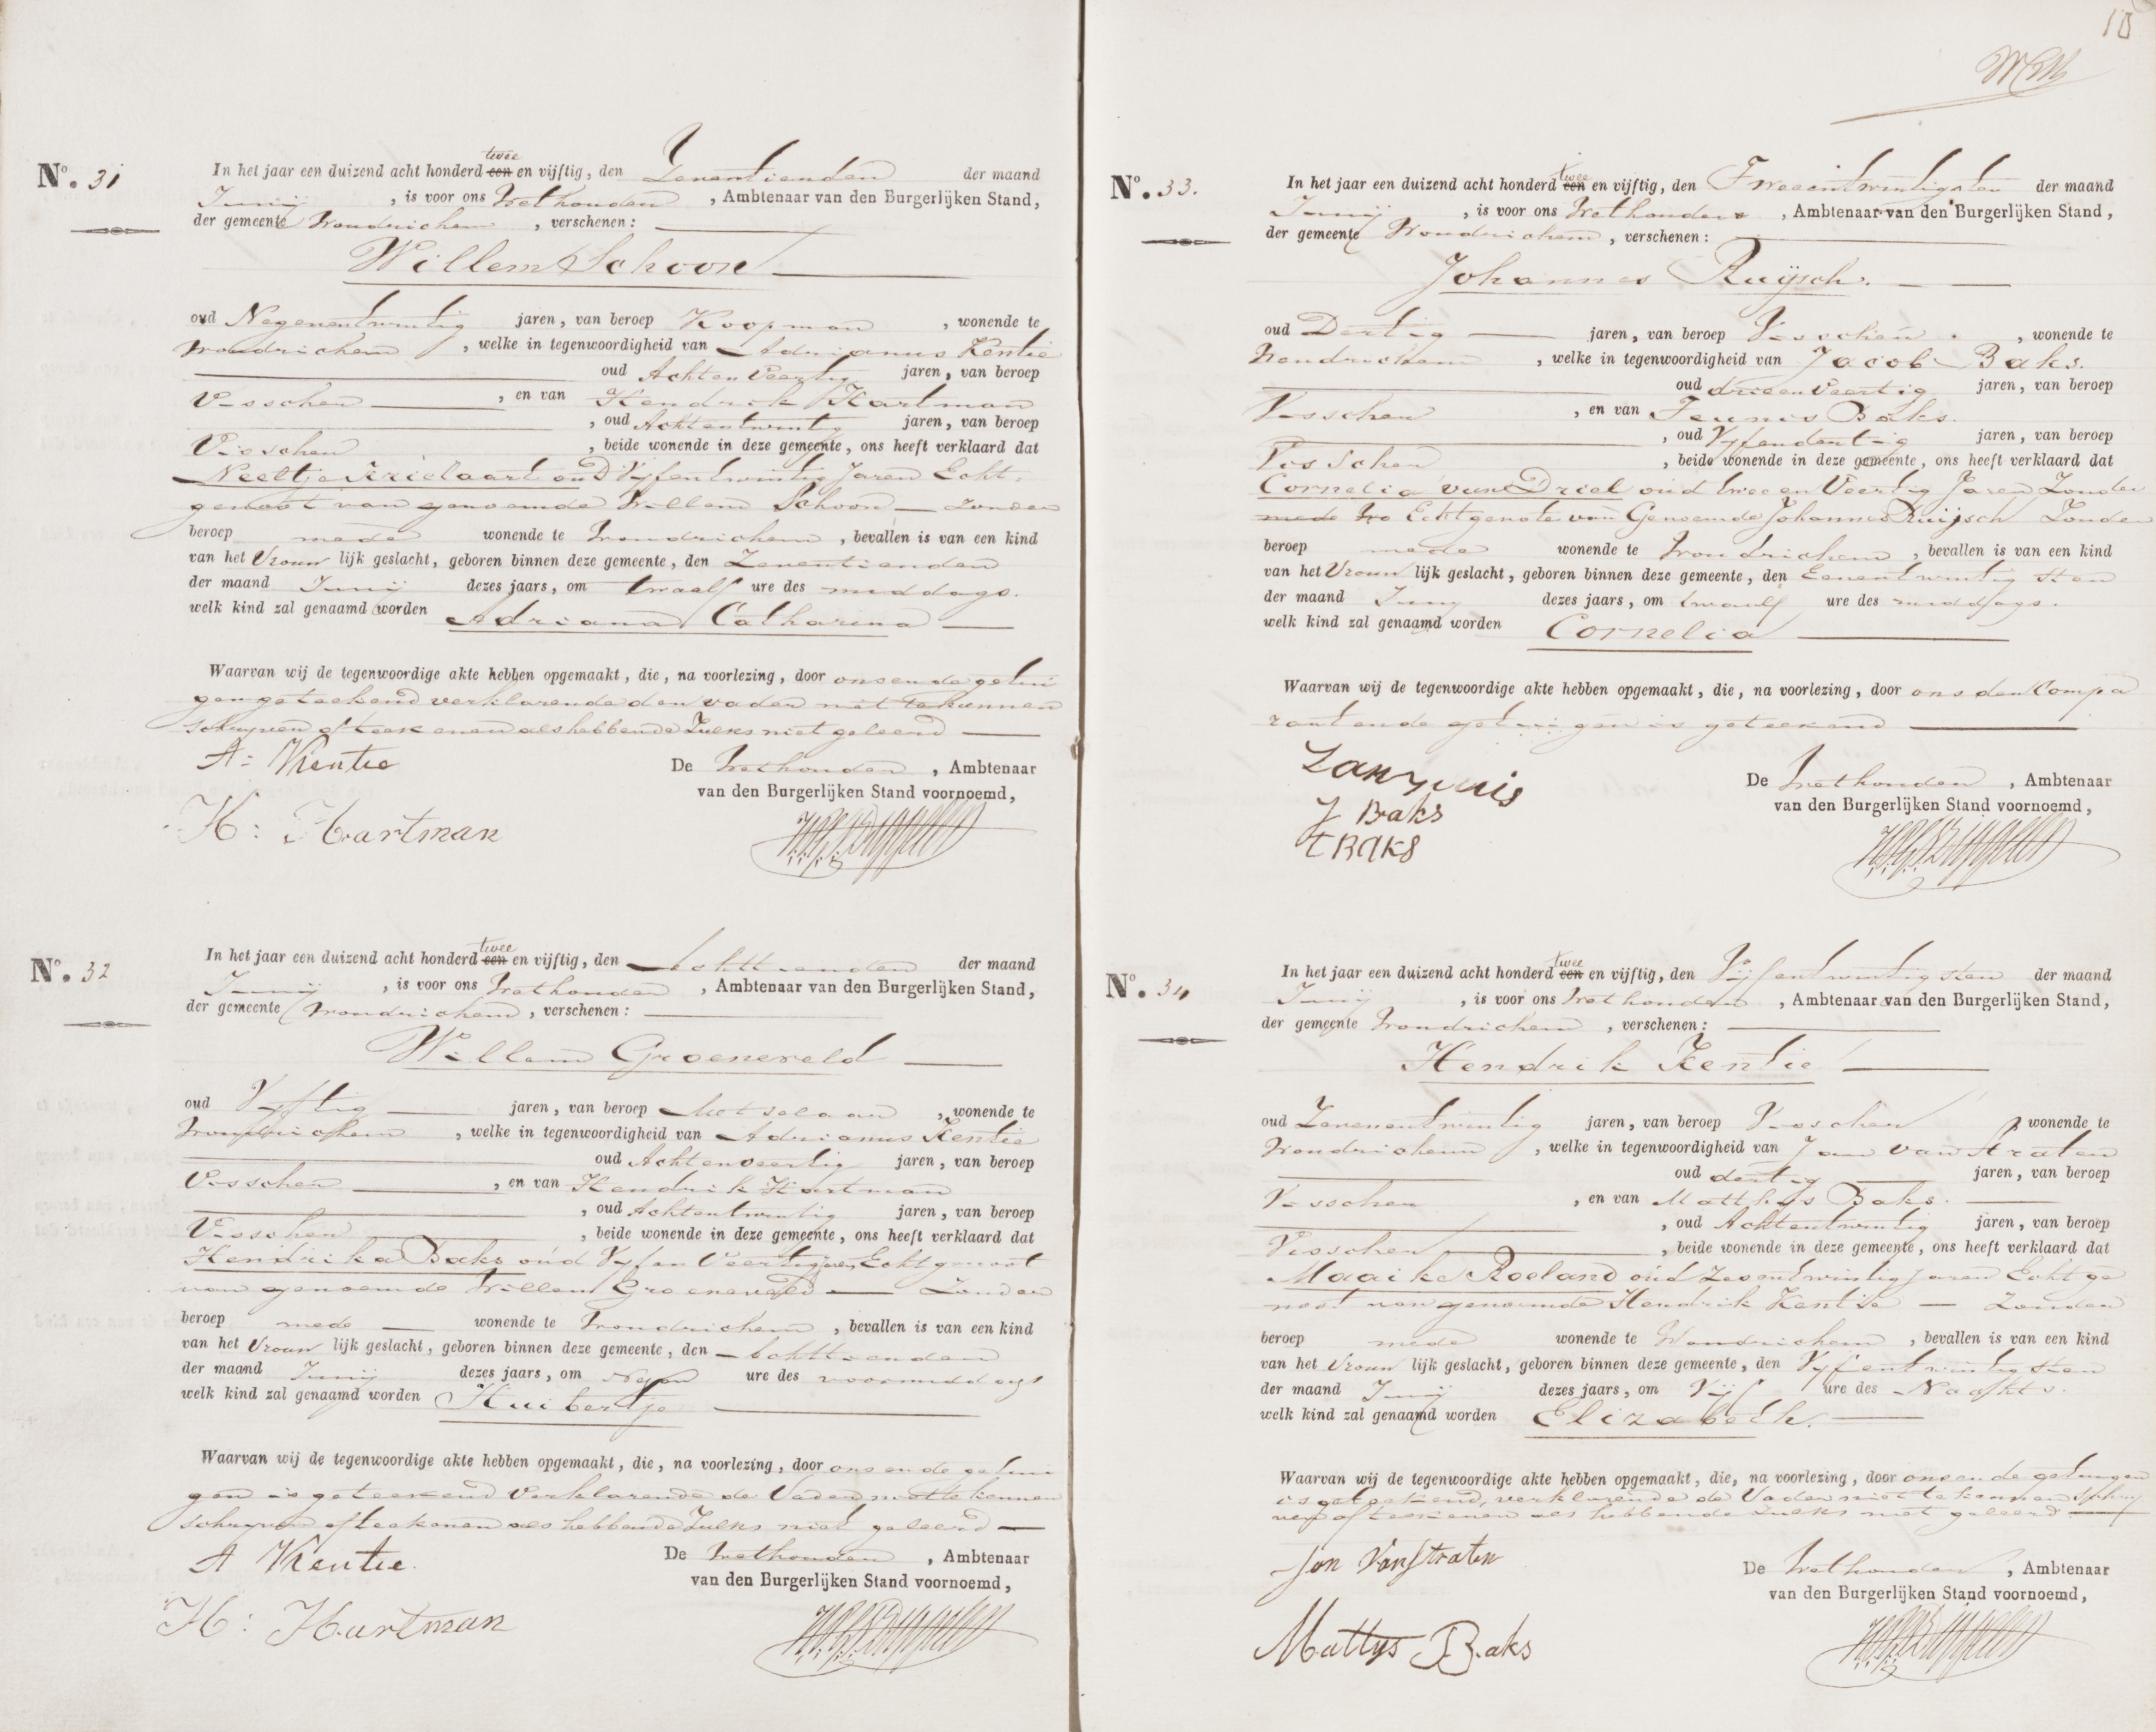 N°. 31
In het jaar een duizend acht honderd een twee en vijftig, den Zeventienden der maand
Junij , is voor ons Wethouder , Ambtenaar van den Burgerlijken Stand,
der gemeente Woudrichem , verschenen :
Willem Schoon
oud Negenentwintig jaren, van beroep Koopman , wonende te
Woudrichem , welke in tegenwoordigheid van Adrianus Kentie
oud Achtenveertig jaren, van beroep
Visscher , en van Hendrik Hartman
, oud Achtentwintig jaren, van beroep
Visscher , beide wonende in deze gemeente, ons heeft verklaard dat
Neeltje oud Vijfentwintig Jaren Echt-
genoot van genoemde Willem Schoon zonder
beroep mede wonende te Woudrichem , bevallen is van een kind
van het Vrouw lijk geslacht, geboren binnen deze gemeente, den Zeventienden
der maand Junij dezes jaars, om twaalf ure des middags.
welk kind zal genaamd worden Adriana Catharina
Waarvan wij de tegenwoordige akte hebben opgemaakt, die, na voorlezing, door ons en de getui
gen geteekend verklarende den vader niet te kunnen
schryven of teekenen als hebbende Zulks niet geleerd
A: Kentie
De Wethouder , Ambtenaar
van den Burgerlijken Stand voornoemd,
H: Hartman
N°. 32
In het jaar een duizend acht honderd een twee en vijftig, den Achttienden der maand
Junij , is voor ons Wethouder , Ambtenaar van den Burgerlijken Stand,
der gemeente Woudrichem , verschenen :
Willem Groeneveld
oud Vyftig jaren, van beroep Metselaar , wonende te
Woudrichem , welke in tegenwoordigheid van Adrianus Kentie
oud Achtenveertig jaren, van beroep
Visscher , en van Hendrik Hartman
, oud Achtentwintig jaren, van beroep
Visscher , beide wonende in deze gemeente, ons heeft verklaard dat
Hendrika Baks oud Vyfen Veertig jaren Echtgenoot
van genoemde Willem Groeneveld Zonder
beroep mede wonende te Woudrichem , bevallen is van een kind
van het Vrouw lijk geslacht, geboren binnen deze gemeente, den Achttienden
der maand Junij dezes jaars, om Negen ure des voormiddags
welk kind zal genaamd worden Huibertje
Waarvan wij de tegenwoordige akte hebben opgemaakt, die, na voorlezing, door ons en de getui
gen is geteekend Verklarende de Vader niet te kunnen
schryven of teekenen als hebbende Zulks niet geleerd
A Kentie.
De Wethouder , Ambtenaar
van den Burgerlijken Stand voornoemd,
H: Hartman
N°. 33.
In het jaar een duizend acht honderd een twee en vijftig, den Tweeentwintigsten der maand
Junij , is voor ons Wethouder , Ambtenaar van den Burgerlijken Stand,
der gemeente Woudrichem , verschenen :
Johannes Ruijsch.
oud Dertig jaren, van beroep Visscher , wonende te
Woudrichem , welke in tegenwoordigheid van Jacob Baks.
oud drieenveertig jaren, van beroep
Visscher , en van Teunis Baks.
, oud Vyfendertig jaren, van beroep
Visscher , beide wonende in deze gemeente, ons heeft verklaard dat
Cornelia van Driel oud twee en Veertig Jaren Zonder
mede Echtgenote van Genoemde Johannes Ruijsch Zonder
beroep mede wonende te Woudrichem , bevallen is van een kind
van het Vrouw lijk geslacht, geboren binnen deze gemeente, den Eenentwintigsten
der maand Juny dezes jaars, om twaalf ure des middags.
welk kind zal genaamd worden Cornelia
Waarvan wij de tegenwoordige akte hebben opgemaakt, die, na voorlezing, door ons den Compa
rant en de getuigen is geteekend
J Baks
T BAKS
De Wethouder , Ambtenaar
van den Burgerlijken Stand voornoemd,
N°. 34
In het jaar een duizend acht honderd een twee en vijftig, den Vijfentwintigsten der maand
Junij , is voor ons Wethouder , Ambtenaar van den Burgerlijken Stand,
der gemeente Woudrichem , verschenen :
Hendrik Kentie
oud Zevenentwintig jaren, van beroep Visscher , wonende te
Woudrichem , welke in tegenwoordigheid van Jan van Straten
oud dertig jaren, van beroep
Visscher , en van Matthys Baks.
, oud Achtentwintig jaren, van beroep
Visscher , beide wonende in deze gemeente, ons heeft verklaard dat
Maaike Roeland oud Zesentwintig jaren Echtge
noot van genoemde Hendrik Kentie Zonder
beroep mede wonende te Woudrichem , bevallen is van een kind
van het Vrouw lijk geslacht, geboren binnen deze gemeente, den Vyfentwintigsten
der maand Junij dezes jaars, om Vijf ure des Nachts.
welk kind zal genaamd worden Elizabeth.
Waarvan wij de tegenwoordige akte hebben opgemaakt, die, na voorlezing, door ons en de getuigen
is geteekend, verklarende de Vader niet te kunnen schry
ven of teekenen als hebbende zulks niet geleerd
Jan Van Straten
De Wethouder , Ambtenaar
van den Burgerlijken Stand voornoemd,
Mattys Baks